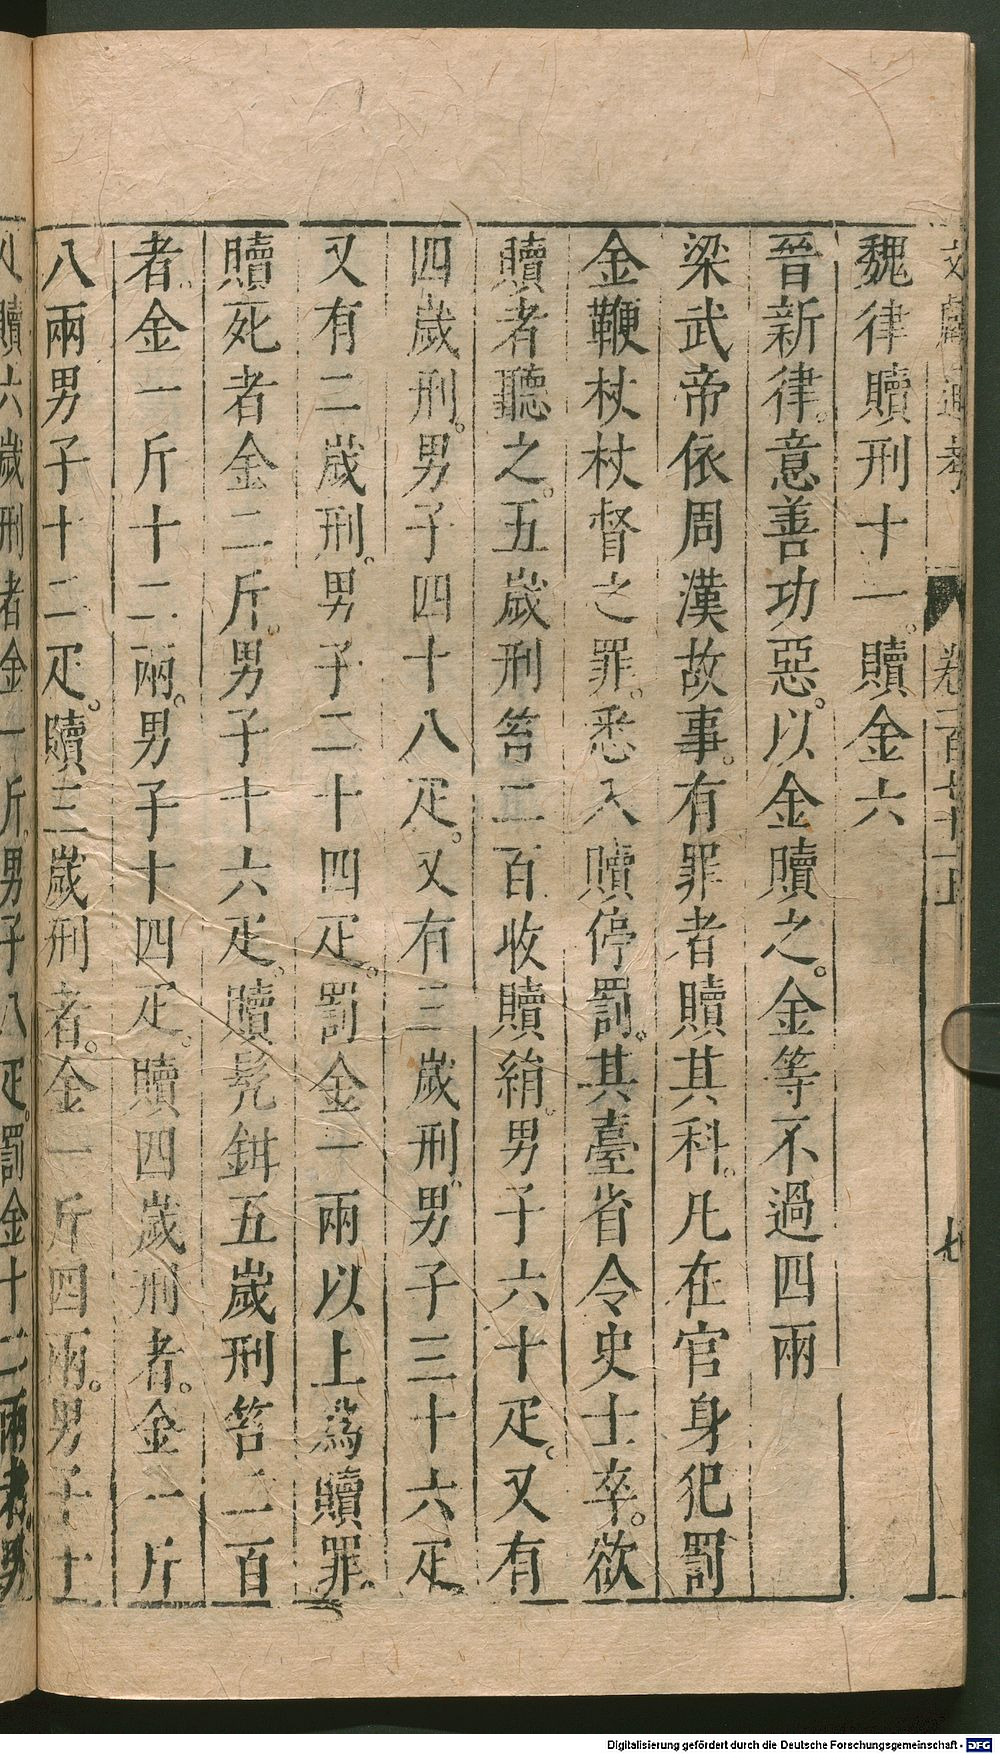 文獻通考 卷一百七十一上 七
魏律贖刑十一。贖金六
晉新律。意善功惡。以金贖之。金等不過四兩
梁武帝依周漢故事。有罪者贖其科。凡在官身犯罰
金鞭杖杖督之罪。悉入贖停罰。其臺省令史士卒。欲
贖者聽之。五歲刑笞二百收贖絹。男子六十疋。又有
四歲刑。男子四十八疋。又有三歲刑。男子三十六疋
又有二歲刑。男子二十四疋。罰金一兩以上爲贖罪。
贖死者金二斤。男子十六疋。贖髡鉗五歲刑笞二百
者。金一斤十二兩。男子十四疋。贖四歲刑者。金一斤
八兩男子十二疋。贖三歲刑者。金一斤四兩。男子十
贖六歲刑者金一斤。男子八疋。罰金十二兩者男
Digitalisierung gefördert durch die Deutsche Forschungsgemeinschaft - DFG